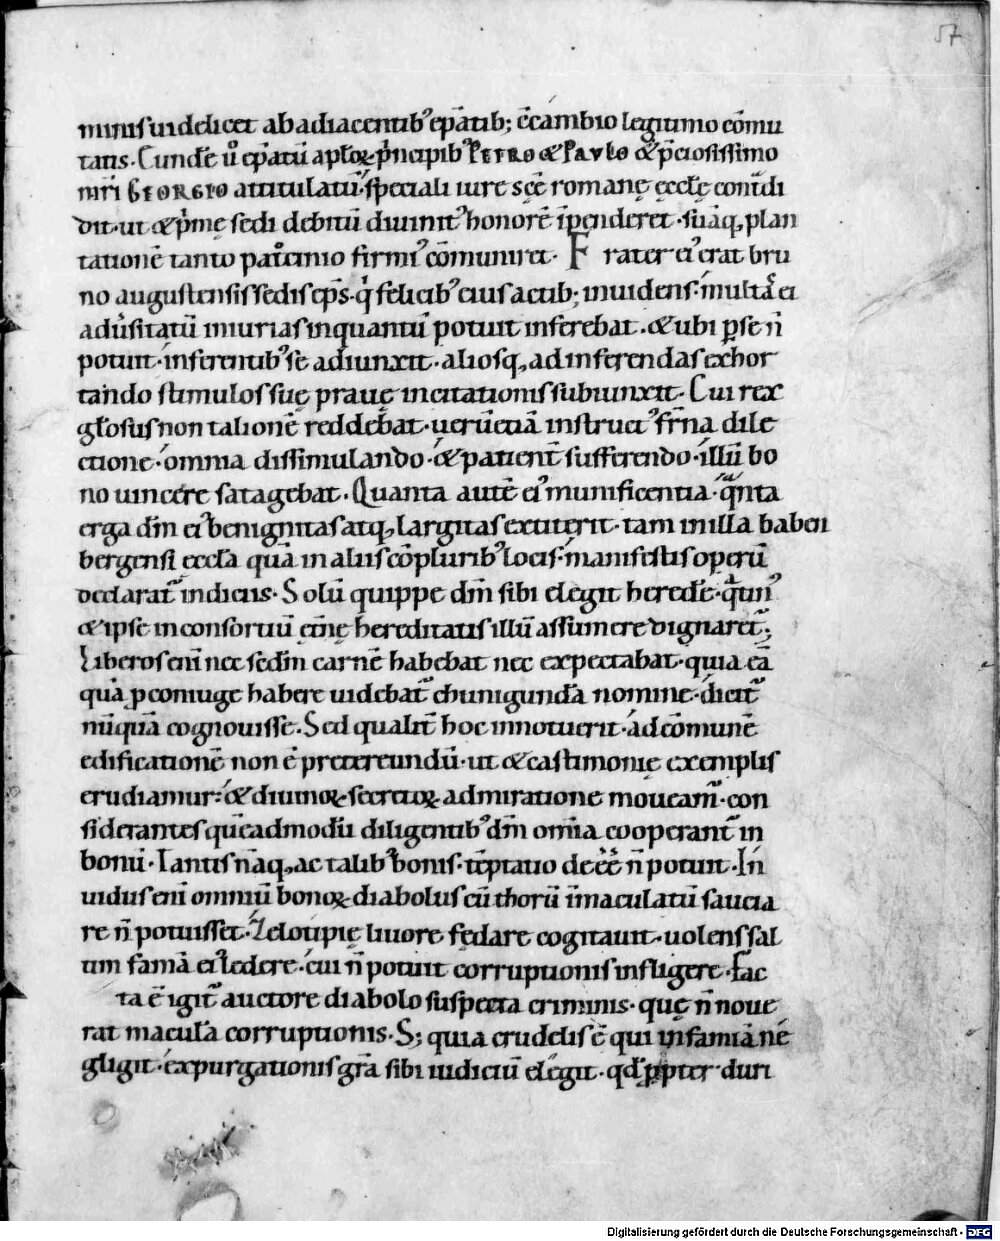 57
minis uidelicet ab adiacentib᾽ ep̄atib; c̄cambio legitimo cōmu
tatis. Cunde ů ep̄atū apl̄oꝝ p̄ncipib᾽ PETRO & PAVLO & p̄ciosissimo
mr̄i GEORGIO attitulatū. speciali iure scē romanę ęccłę contͥdi
dit. ut & pͥmę sedi debitū diuinit᾽ honorē īpenderet. suāq, plan
tationē tanto patͦcinio firmi᾽ cōmuniret. Frater ei᾽ erat bru
no augustensis sedis ep̄s. qͥ felicib᾽ eius actib; inuidens. multā ei
adůsitatū iniurias inquantū potuit inferebat. & ubi ꝑ se n̄
potuit. inferentib᾽ se adiunxit. aliosq, ad inferendas exhor
tando stimulos suę prauę incitationis subiunxit. Cui rex
gł̄osus non talionē reddebat. uerūetiā instruct᾽ fr̄na dile
ctione. omnia dissimulando. & patient̄ sufferendo. illū bo
no uincere satagebat. Quanta autē ei᾽ munificentia. qͣnta
erga dm̄ ei᾽ benignitas atq, largitas extiterit. tam in illa baben
bergensi eccła quā in aliis cōplurib᾽ locis. manifestis operū
declarat᷑ indiciis. Solū quippe dm̄ sibi elegit herede. qͣtin᾽
& ipse in consortiū etn̄ę hereditatis illū assumere dignaret᷑;
Liberos eni nec sedm̄ carnē habebat nec expectabat. quia eā
quā ꝓ coniuge habere uidebat᷑ chunigunda nomine. dicit᷑
nūquā cognouisse. Sed qualit̄ hoc innotuerit. ad cōmunē
edificationē non ē pretereundū. ut & castimonię exemplis
erudiamur: & diuinoꝝ secretoꝝ admiratione moueam᷑. con
siderantes quēadmodū diligentib᾽ dm̄ omīa cooperant᷑ in
bonū. Tantis nāq, ac talib᾽ bonis. tēptatio deēē n̄ potuit. In
uidus eni omniū bonoꝝ diabolus cū thorū īmaculatū saucia
re n̄ potuisset. Zelotipię liuore fędare cogitauit. uolens sal
tim famā ei᾽ lędere. cui n̄ potuit corruptionis infligere. Fac
ta ē igit᷑ auctore diabolo suspecta criminis. quę n̄ noue
rat maculā corruptionis. S; quia crudelis ē qui infamiā ne
gligit. expurgationis gr̄a sibi iudiciū elegit. qd̄ ꝓpter duri
Digitalisierung gefördert durch die Deutsche Forschungsgemeinschaft - DFG